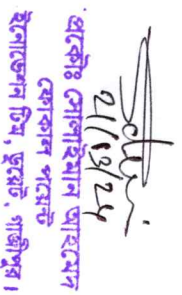 21/03/24
প্রকৌঃ সোলাইমান আহমেদ
ফোকাল পয়েন্ট
ইনোভেশন টিম, ডুয়েট, গাজীপুর।